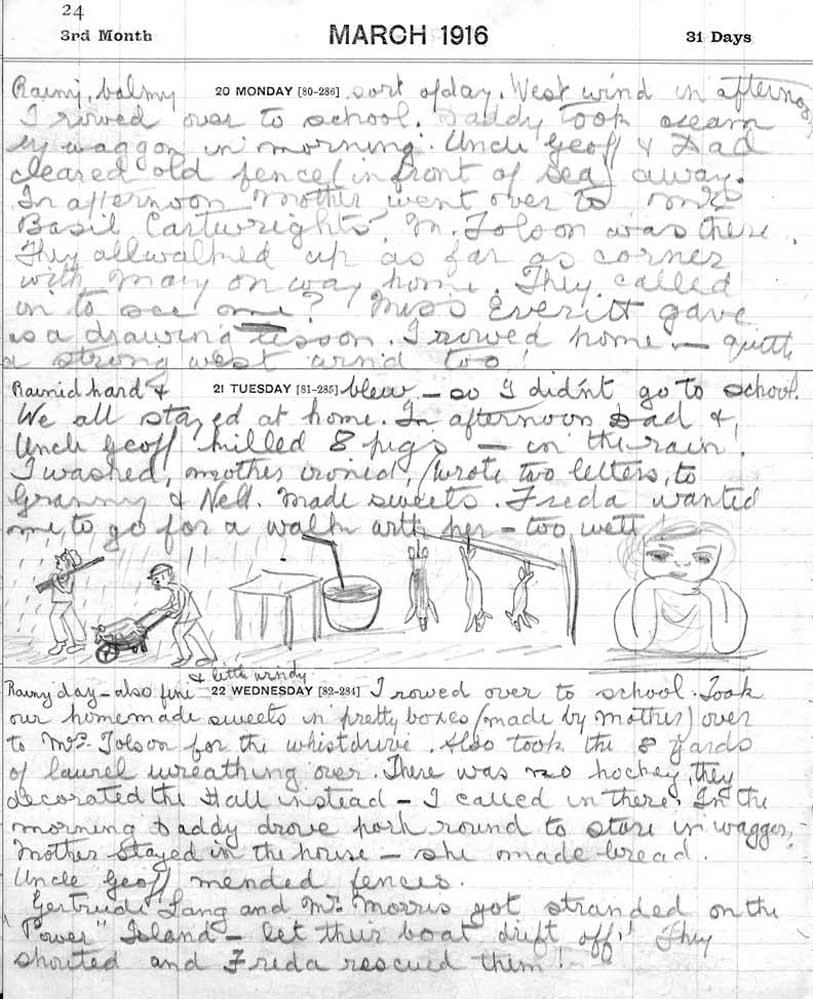 24
3rd Month MARCH 1916 31 Days
Rainy, balmy 20 MONDAY [80-286] sort of day. West wind in afternoon
I rowed over to school. Daddy took cream
by waggon in morning. Uncle Geoff & Dad
cleared old fence (in front of sea) away.
In afternoon Mother went over to Mrs
Basil Cartwrights'. M. Tolson was there.
They all walked up as far as corner
with Mary on way home. They called
in to see me? Miss Everitt gave
us a drawing lesson. I rowed home — quitte
a strong west wind too!
Rainid hard & 21 TUESDAY [81-285] blew — so I didn't go to school.
We all stayed at home. In afternoon Dad &
Uncle Geoff killed 8 pigs — in the rain!
I washed, mother ironid, I wrote two letters, to
Granny & Nell. Made sweets. Freda wanted
me to go for a walk with her — too wett
& little windy
Rainy day — also fine 22 WEDNESDAY [82-284] I rowed over to school. Took
our homemade sweets in pretty boxes (made by Mother) over
to Mrs. Tolson for the whistdrive. Also took the 8 yards
of laurel wreathing over. There was no hockey, they
decorated the Hall instead — I called in there. In the
morning Daddy drove pork round to store in waggon,
Mother stayed in the house — she made bread.
Uncle Geoff mended fences.
Gertrude Lang and Mr. Morris got stranded on the
"Power" Island — let their boat drift off! They
shouted and Freda rescued them!